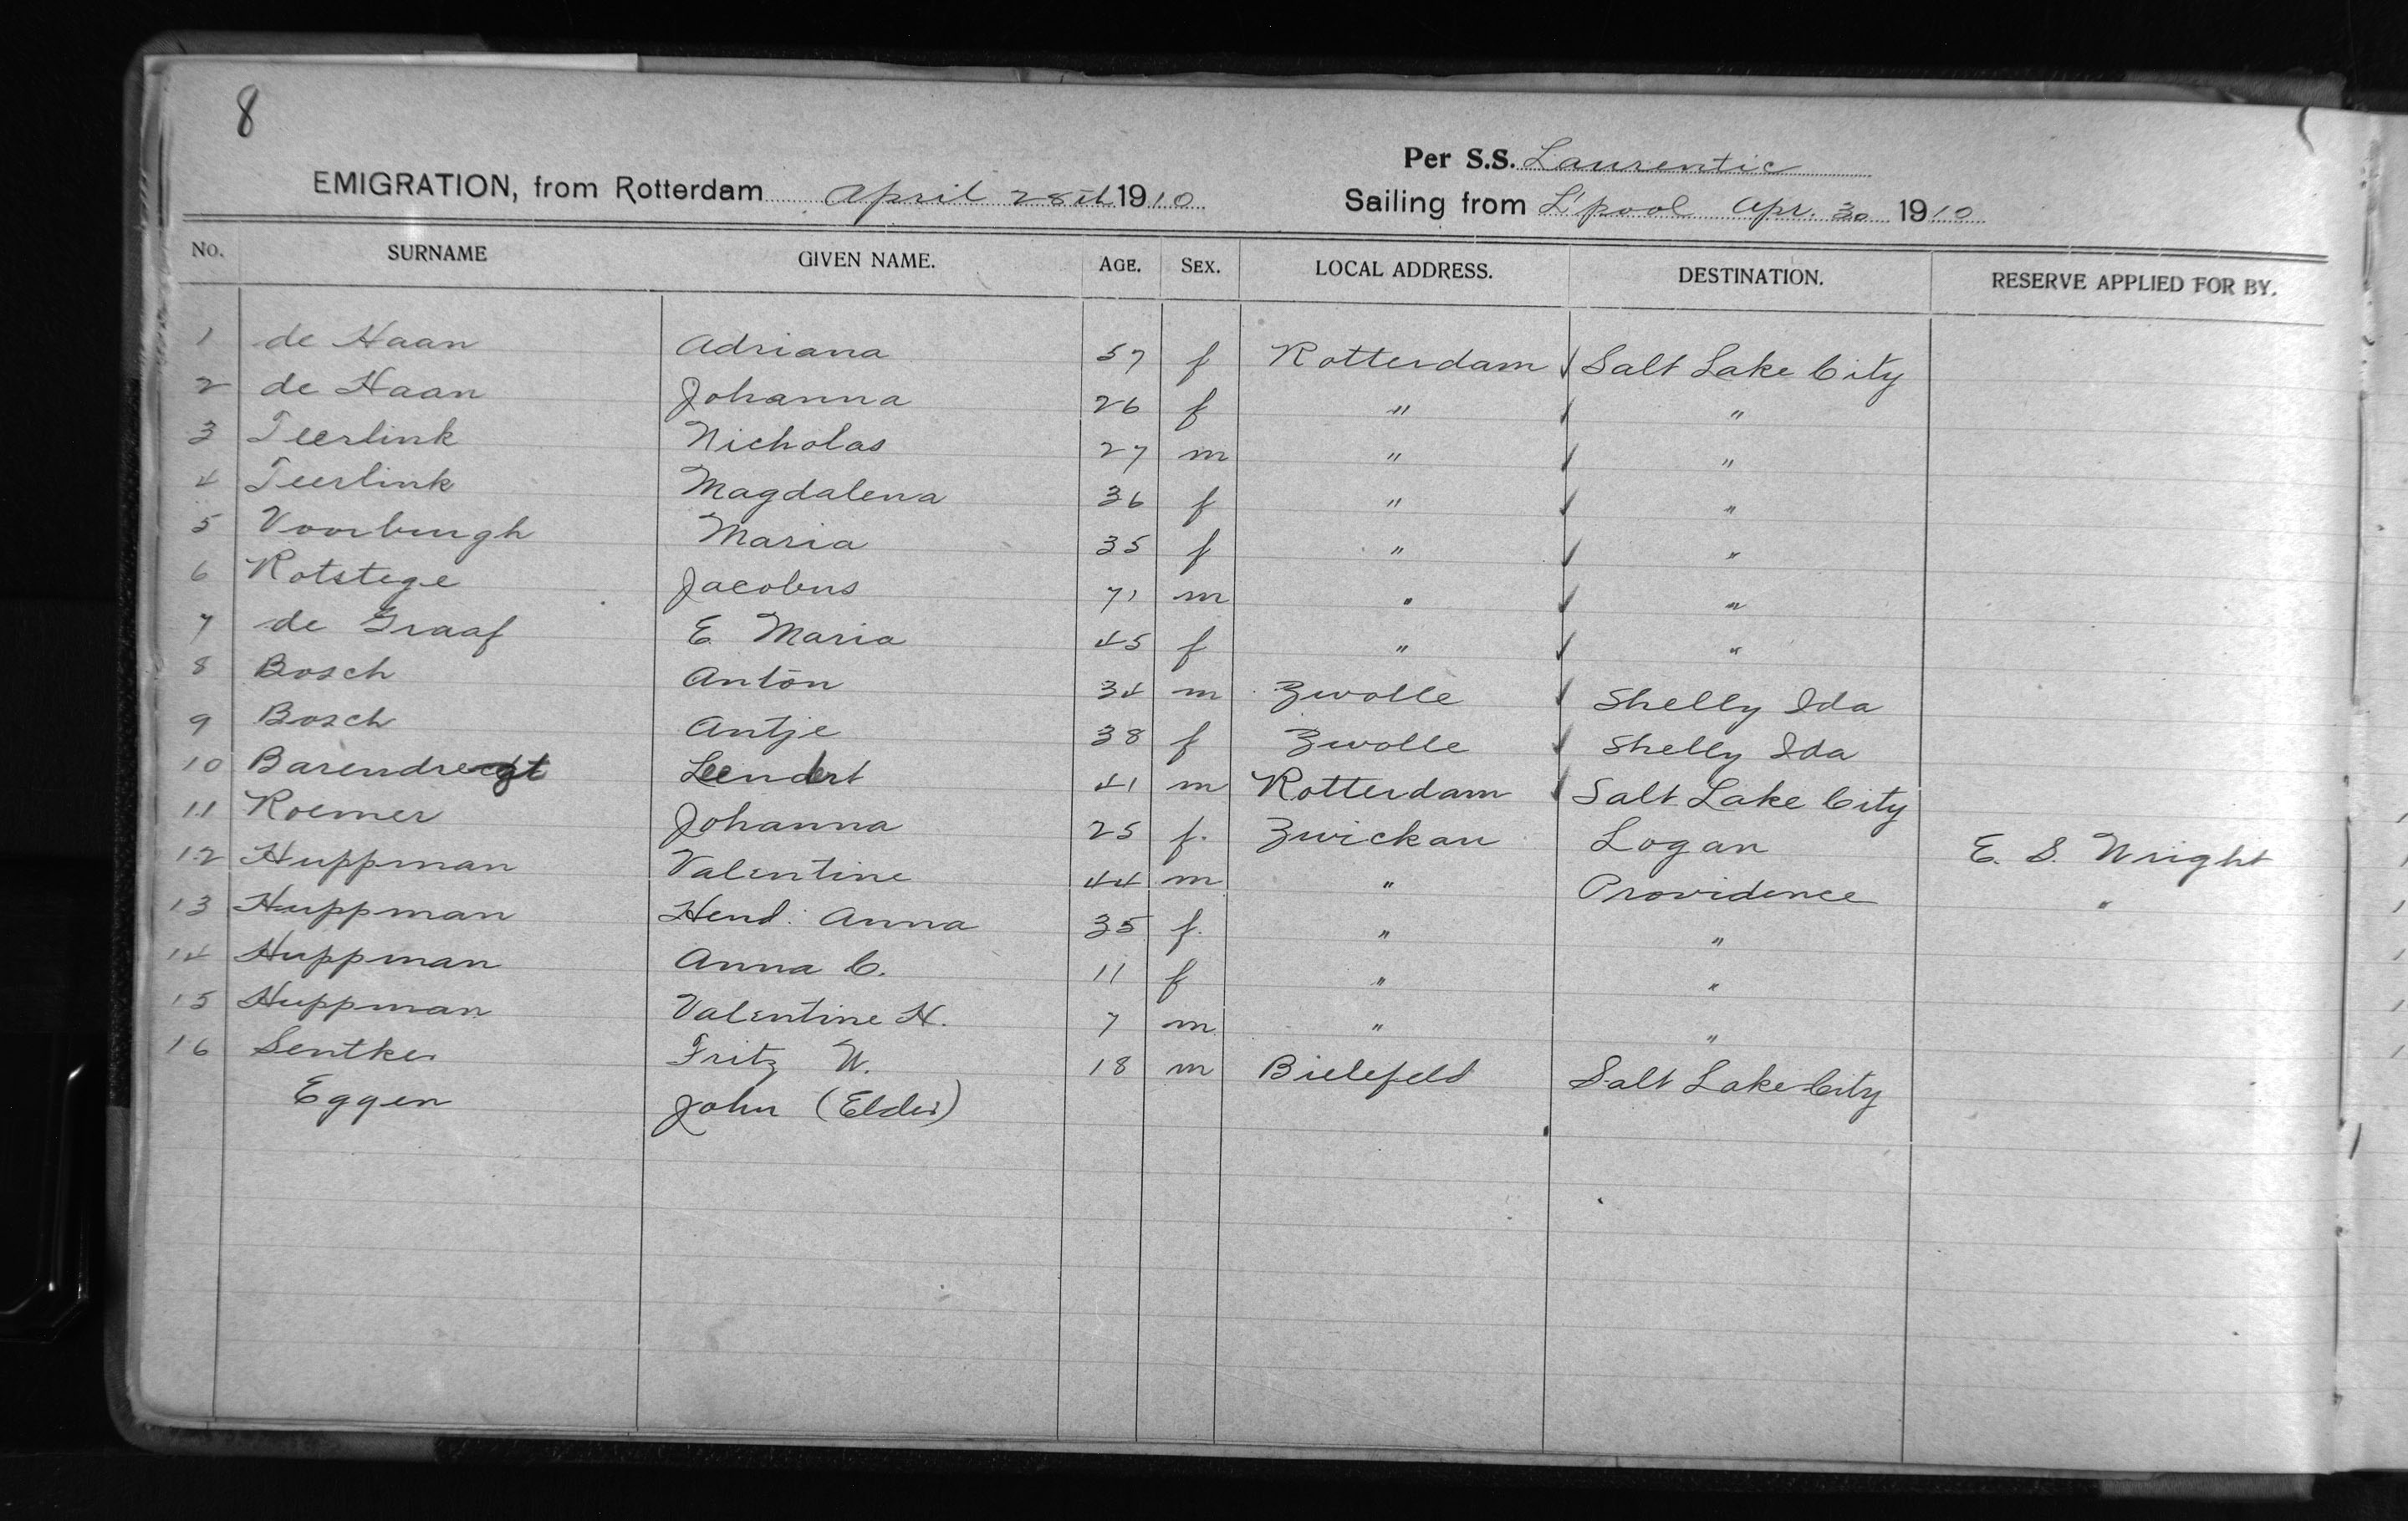 8
Per S.S. Laurentic
EMIGRATION, from Rotterdam April 28th 1910
Sailing from L'pool Apr. 30 1910
No. SURNAME GIVEN NAME. AGE. SEX. LOCAL ADDRESS. DESTINATION. RESERVE APPLIED FOR BY.
1 de Haan Adriana 57 f Rotterdam ✓ Salt Lake City
2 de Haan Johanna 26 f " ✓ "
3 Teerlink Nicholas 27 m " ✓ "
4 Teerlink Magdalena 36 f " ✓ "
5 Voorburgh Maria 35 f " ✓ "
6 Rotstege Jacobus 71 m " ✓ "
7 de Graaf E. Maria 45 f " ✓ "
8 Bosch Anton 34 m Zwolle ✓ Shelly Ida
9 Bosch Antje 38 f Zwolle ✓ Shelly Ida
10 Barendregt Leendert 41 m Rotterdam ✓ Salt Lake City
11 Roemer Johanna 25 f. Zwickau Logan E. S. Wright
12 Huppman Valentine 44 m " Providence "
13 Huppman Hend. Anna 35 f. " "
14 Huppman Anna C. 11 f " "
15 Huppman Valentine H. 7 m " "
16 Sentker Fritz W. 18 m Bielefeld Salt Lake City
Eggen John (Elder)